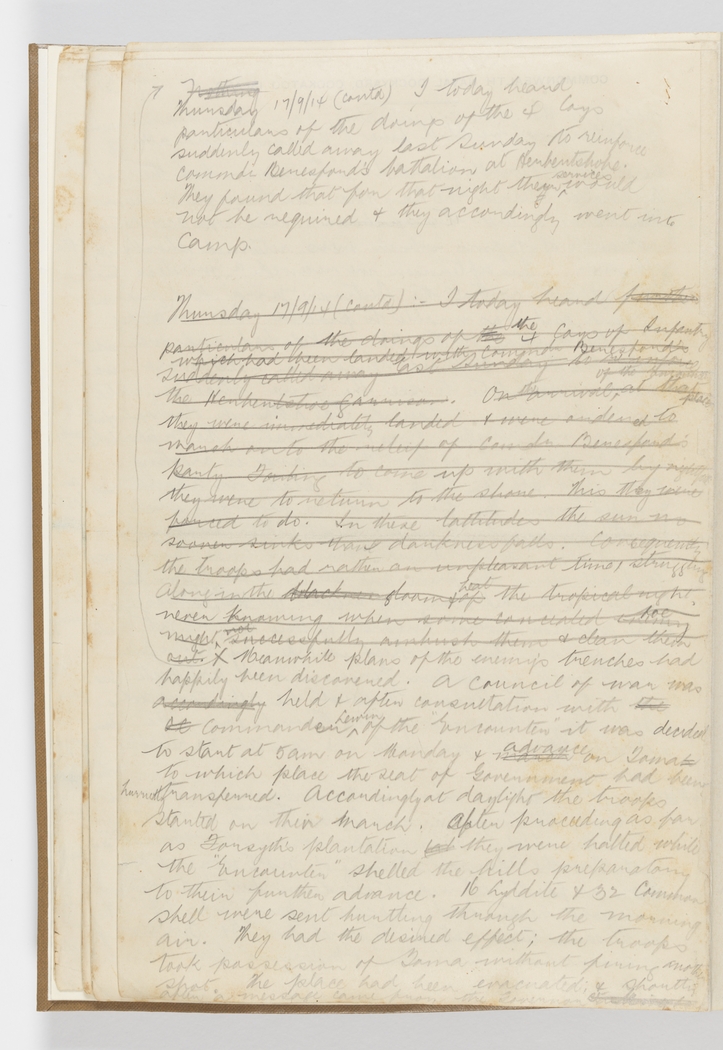 Nothing
Thursday 17/9/14 (contd) I today heard
particulars of the doings of the 4 Coys
suddenly called away last Sunday to reinforce
commdr Beresfords battalion at Herbertshohe.
They found that for that night their services would
not be required & they accordingly went into
Camp.
Thursday 17/9/14 (contd) :- I today heard further
particulars of the doings of the the 4 Coys of Infantry
which had been landed with Commdr Beresford's
suddenly called away last Sunday to reinforce
the Herbertshoe garrison. On arrival, at that place
they were immediately landed & were ordered to
march on to the relief of Comdr Beresford's
party. Failing to come up with them by
they were to return to the shore. This they were
forced to do. In these lattitudes the sun no
sooner sinks than darkness falls. Consequently
the troops had rather an unpleasant time, struggling
along in the gloom of the tropical night,
never knowing when some concealed enemy foe
might not successfully ambush them & clean them
out. X Meanwhile plans of the enemy's trenches had
happily been discovered. A council of war was
accordingly held & after consultation with the
Commander Lewin of the "Encounter" it was decided
to start at 5am on Monday & advance on Toma
to which place the seat of Government had been
hurriedly transferred. Accordingly at daylight the troops
started on their march. After proceeding as far
as Forsyth's plantation they were halted while
the "Encounter" shelled the hills preparatory
to their further advance. 16 Lyddite & 32 Common
shell were sent hurtling through the morning
air. They had the desired effect; the troops
took possession of Toma without firing another
shot. The place had been evacuated; & shortly
after a message came from the Governor